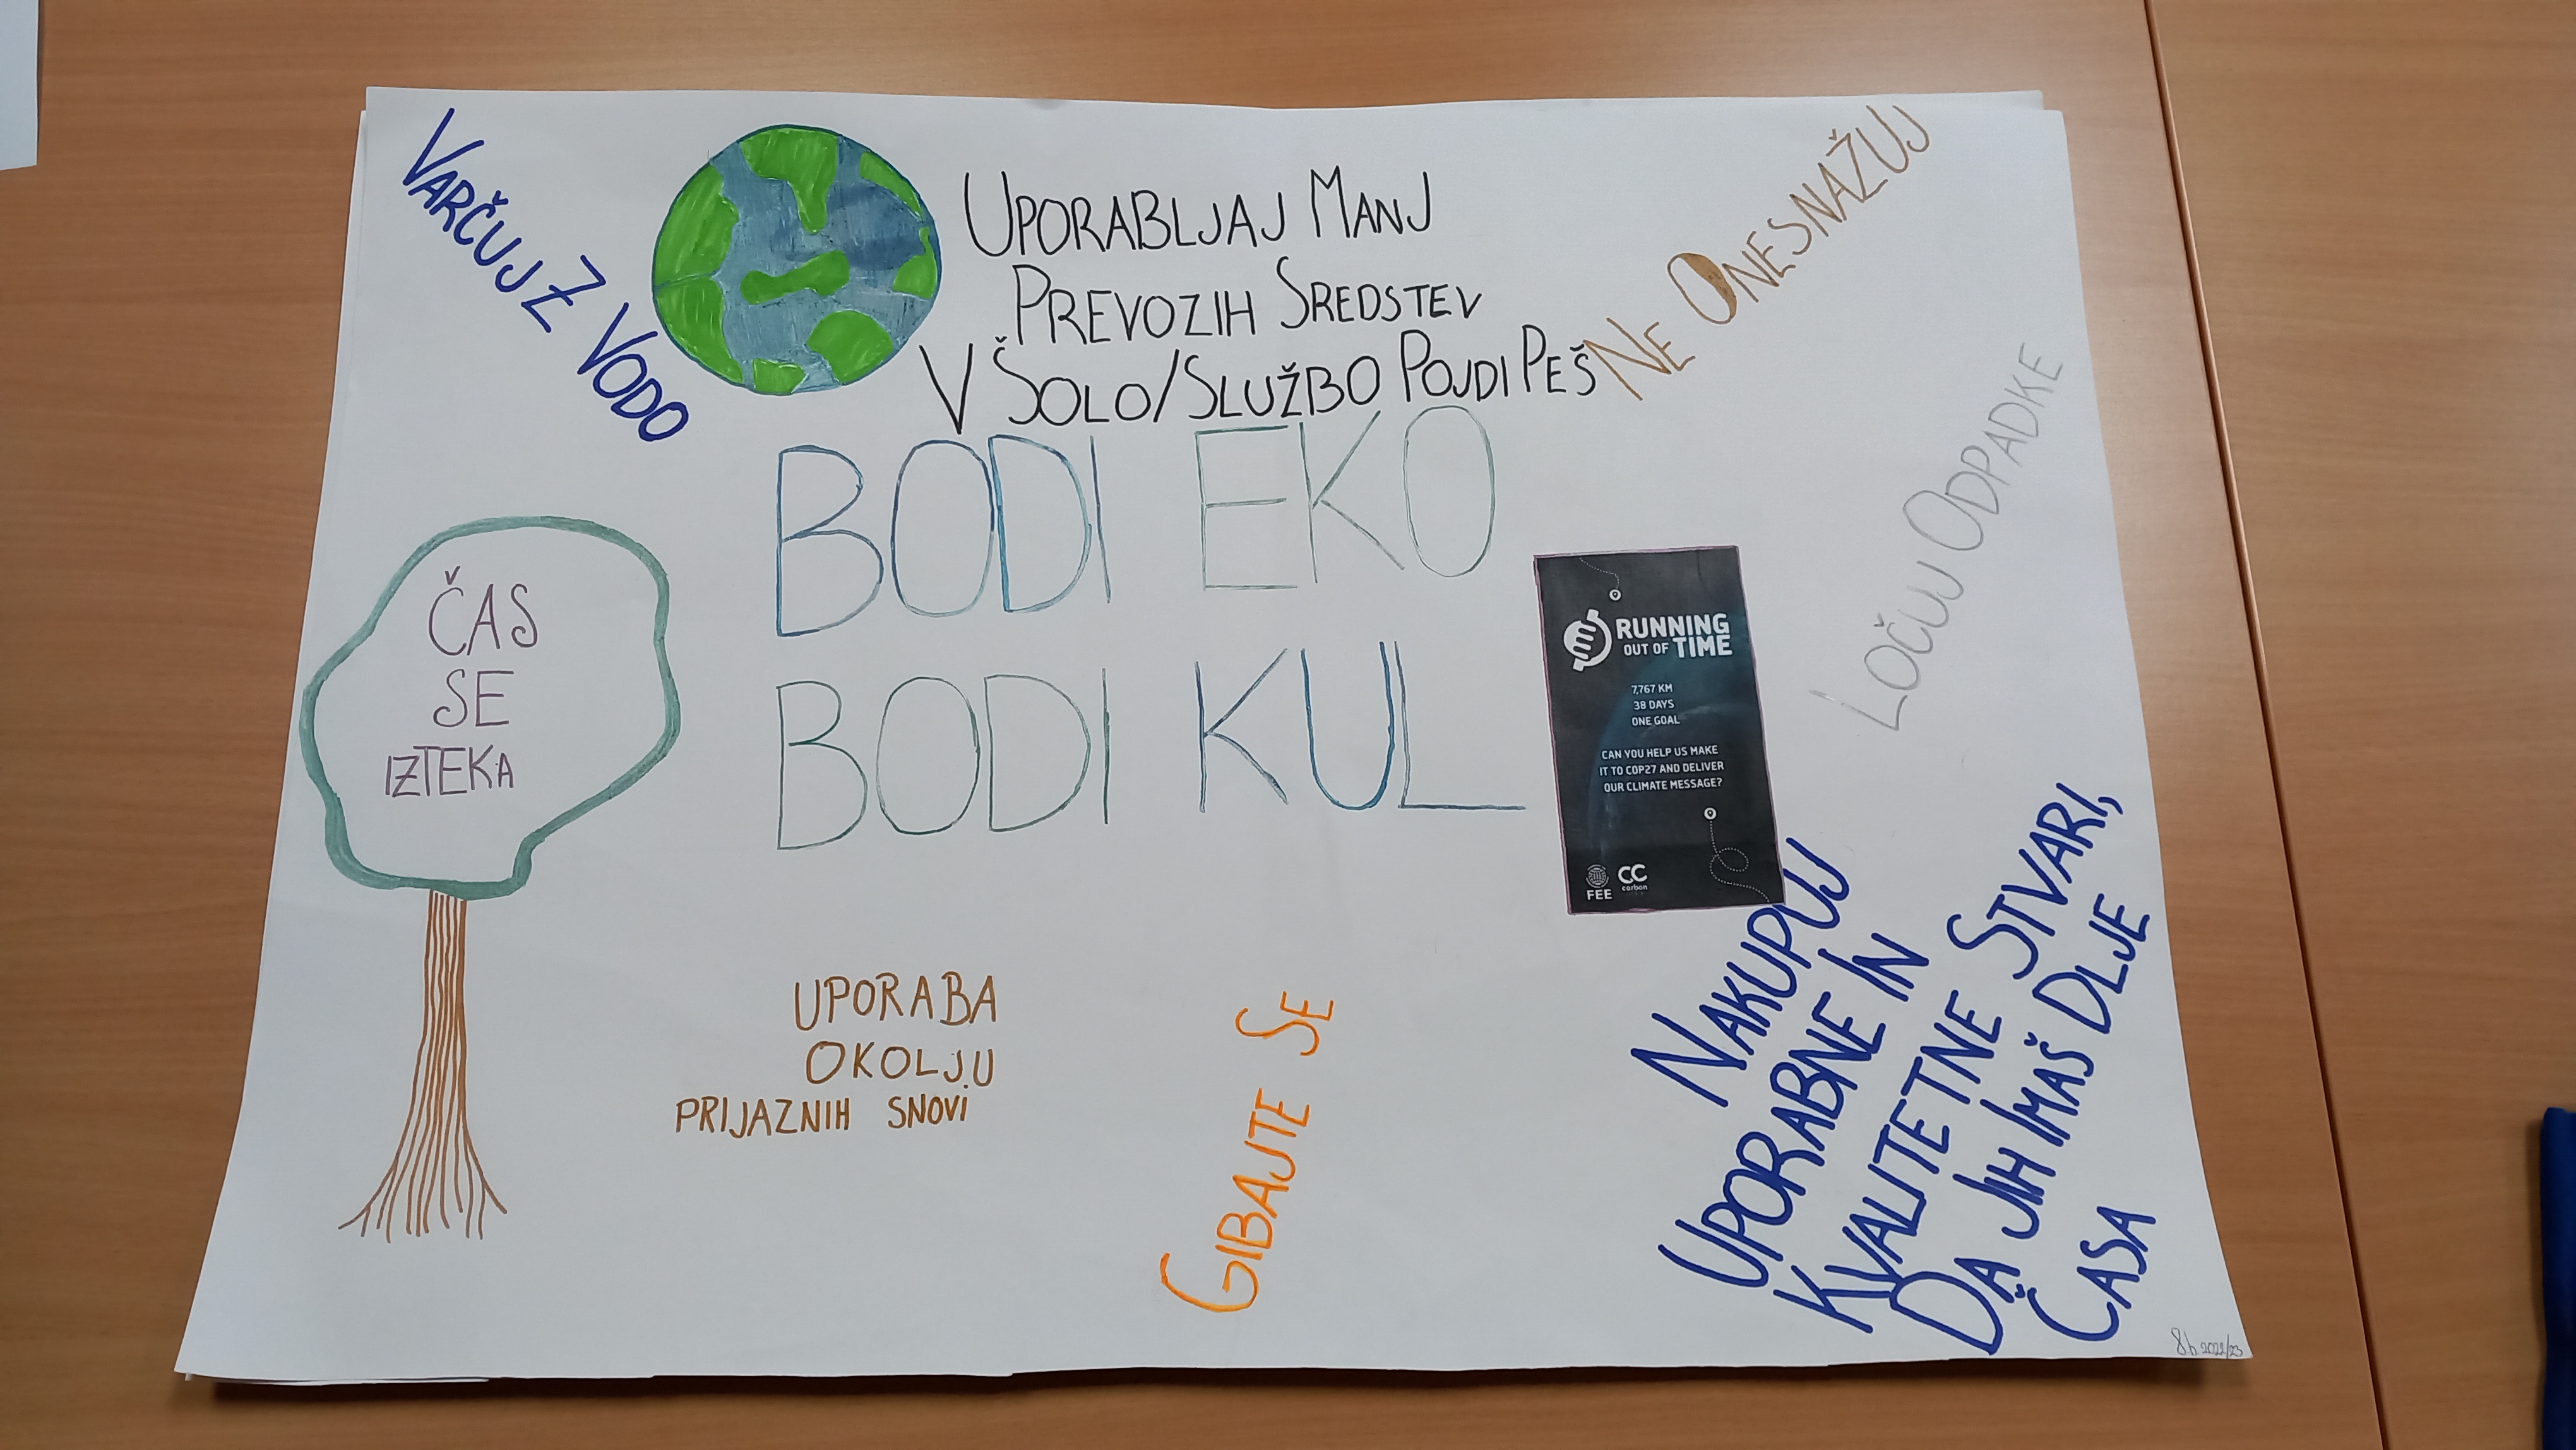 VARČUJ Z VODO
UPORABLJAJ MANJ
PREVOZIH SREDSTEV
V ŠOLO/SLUŽBO POJDI PEŠ
NE ONESNAŽUJ
LOČUJ ODPADKE
BODI EKO
BODI KUL
ČAS
SE
IZTEKA
RUNNING
OUT OF TIME
7,767 KM
38 DAYS
ONE GOAL
CAN YOU HELP US MAKE
IT TO COP27 AND DELIVER
OUR CLIMATE MESSAGE?
FEE
CC
carbon
UPORABA
OKOLJU
PRIJAZNIH SNOVi
GIBAJTE SE
NAKUPUJ
UPORABNE IN
KVALITETNE STVARI,
DA JIH IMAŠ DLJE
ČASA
8.b 2022/23